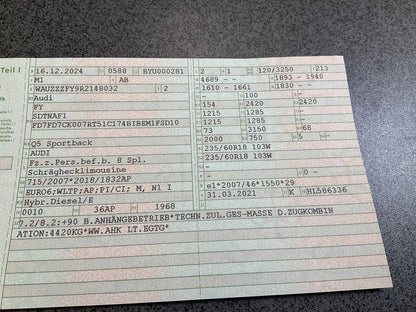 Teil I
16.12.2024 0588 BYU000281 2 1 120/3250 213
M1 AB 4689 - - 1893 - 1940
WAUZZZFY9R2148032 2 1610 - 1661 1830 - -
Audi - 100 -
FY 154 2420 2420
SDTNAF1 1215 1285 -
FD7FD7CK007RT51C174BIBEM1FSD10 1215 1285 -
73 3150 68
Q5 Sportback 2000 750 5 -
AUDI 235/60R18 103W
Fz.z.Pers.bef.b. 8 Spl. 235/60R18 103W
Schräghecklimousine -
715/2007*2018/1832AP - 0 -
EURO6;WLTP;AP;PI/CI; M, N1 I e1*2007/46*1550*29
Hybr.Diesel/E 31.03.2021 K HL586336
0010 36AP 1968
7.2/8.2:+90 B.ANHÄNGEBETRIEB*TECHN.ZUL.GES-MASSE D.ZUGKOMBIN
ATION:4420KG*WW.AHK LT.EGTG*